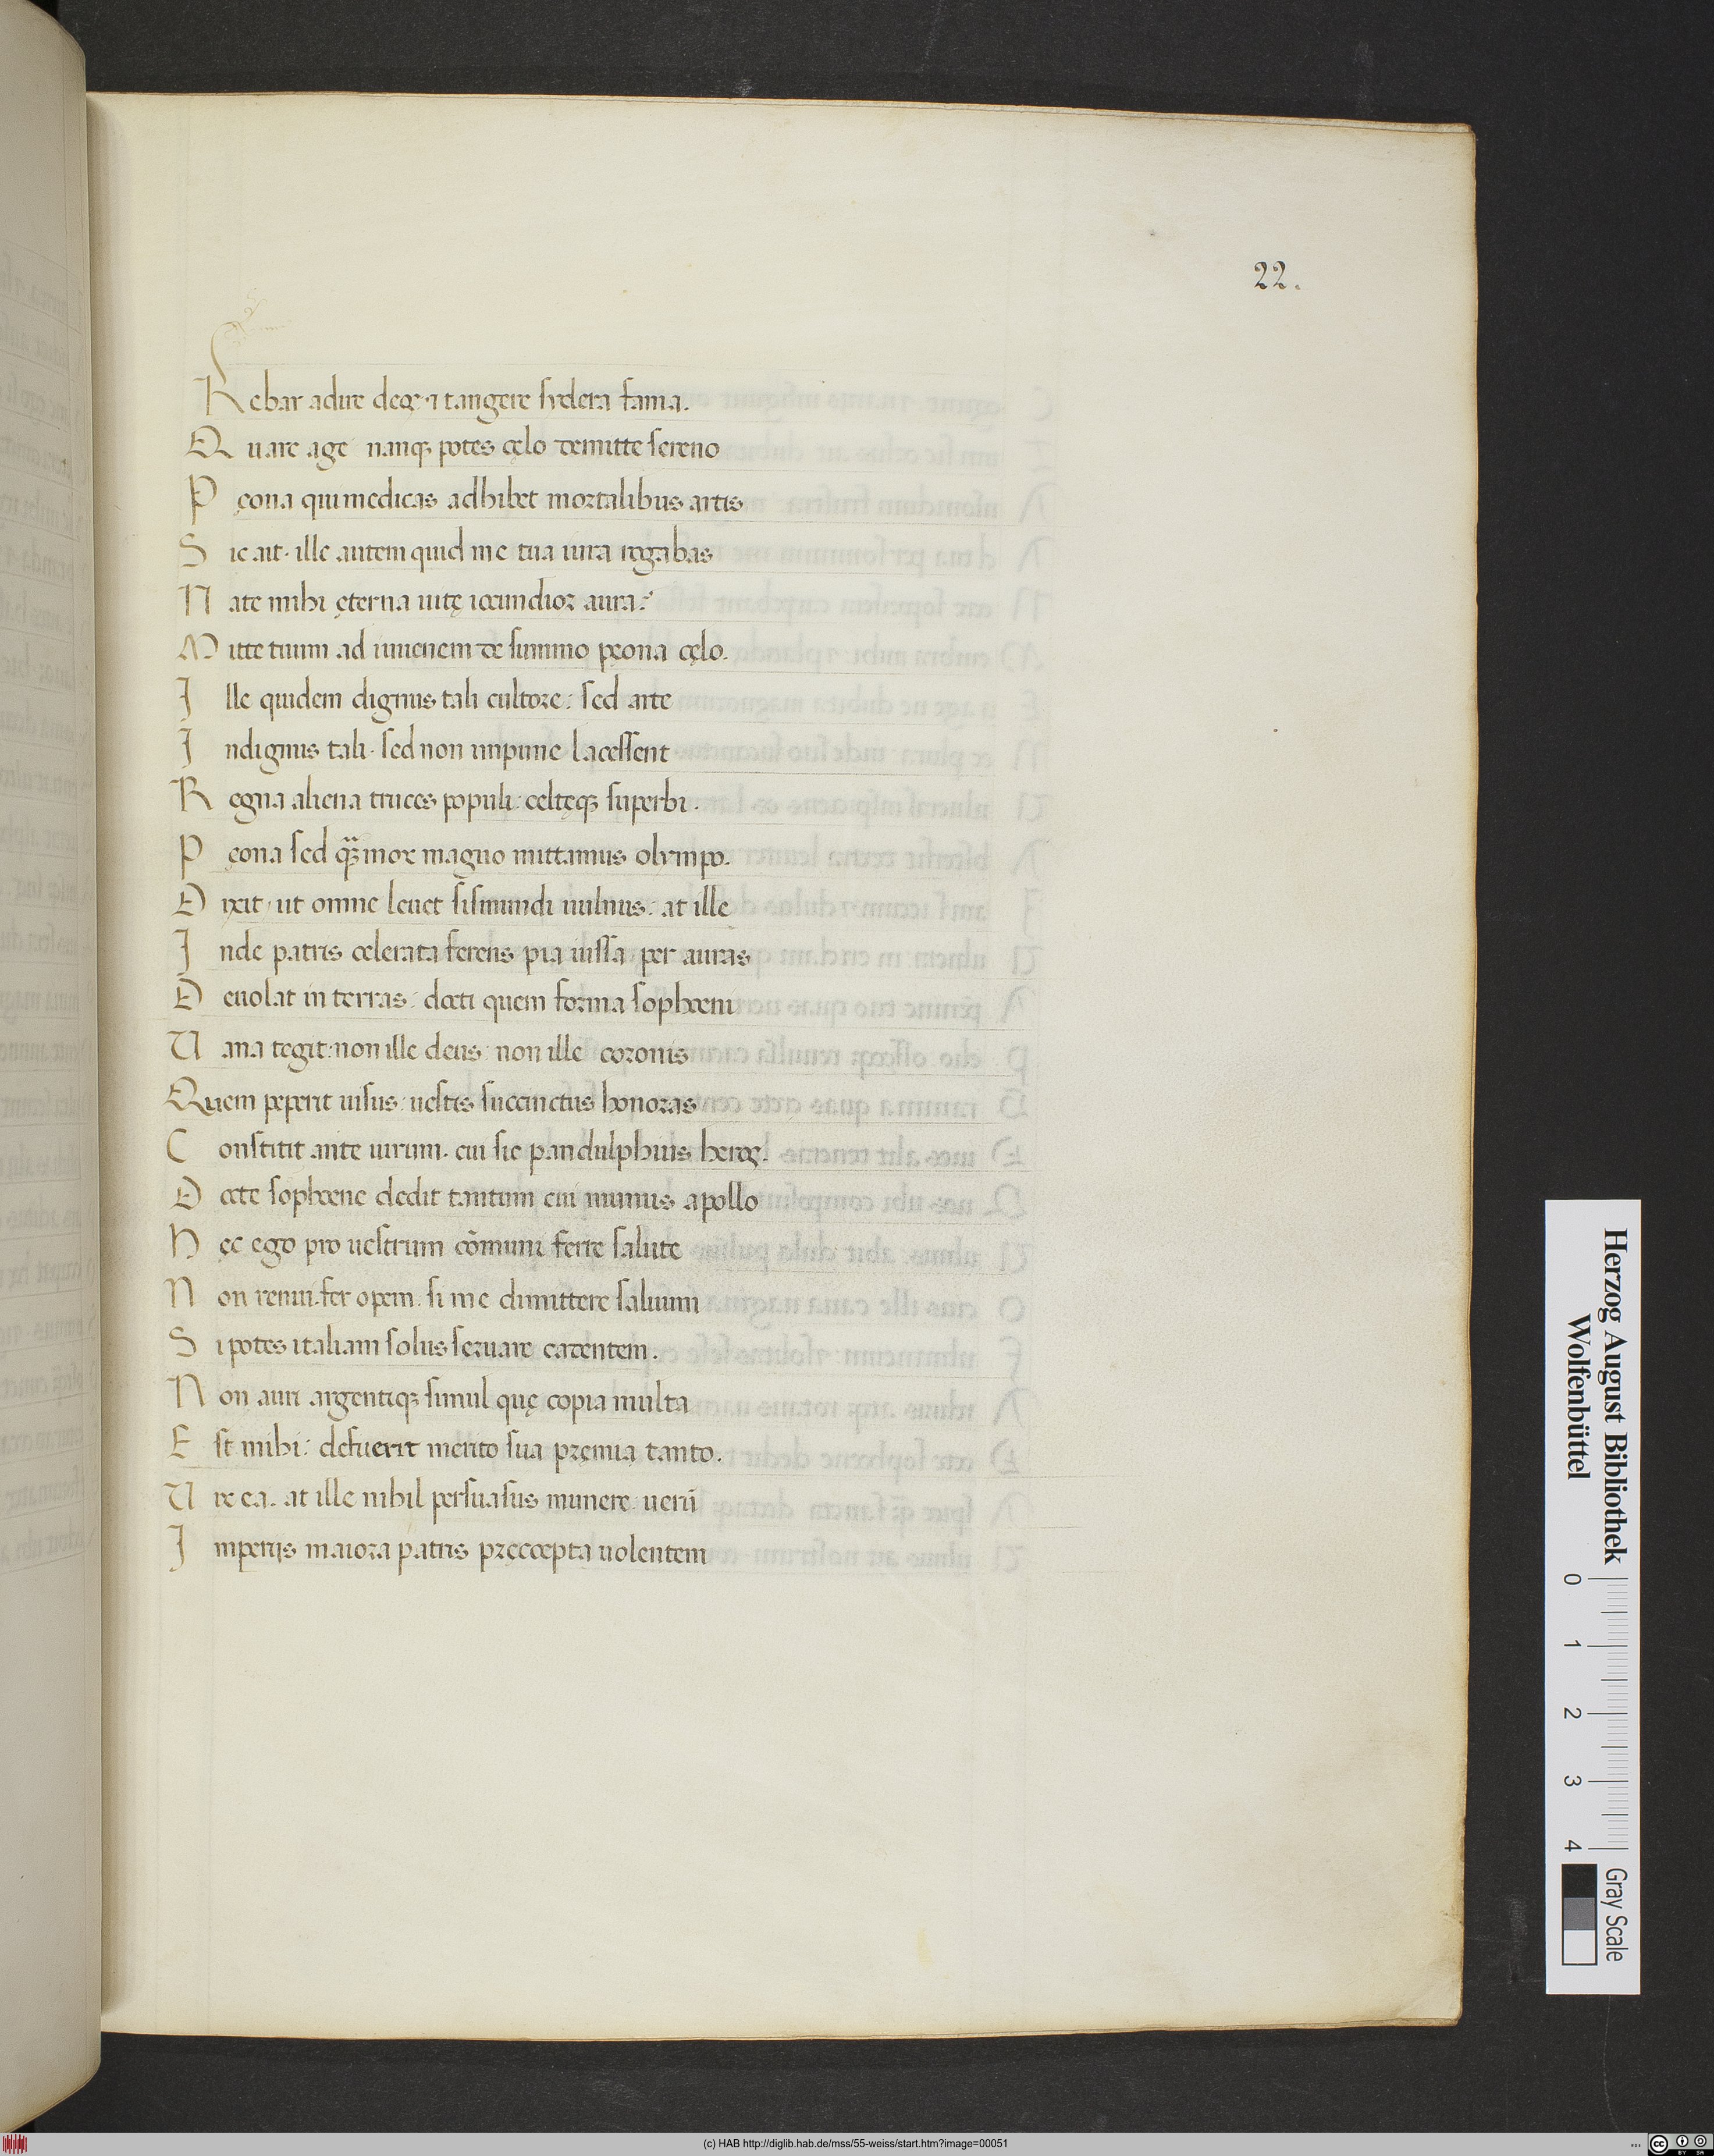 22.
Rebar adire deos ⁊ tangere sydera fama.
Quare age nanqꝫ potes cęlo demitte sereno
Pęona qui medicas adhibet mortalibus artis
Sic ait· ille autem quid me tua iura rogabas
Nate mihi ęterna uitę iocundior aura?
Mitte tuum ad iuuenem de summo pęona cęlo.
Ille quidem dignus tali cultore: sed arte
Indignus tali· sed non impune lacessent
Regna aliena truces populi: celtęqꝫ superbi.
Pęona sed mox magno mittamus olympo.
Dixit, ut omne leuet sismundi uulnus: at ille
Inde patris celerata ferens pia iussa per auras
Deuolat in terras: docti quem forma sophoeni
Uana tegit: non ille deus: non ille coronis
Quem peperit uisus: uestis succinctus honoras
Constitit ante uirum. cui sic pandulphius heros.
Docte sophoene dedit tantum cui munus apollo
Hęc ego pro uestrum cōmuni ferre salute
Non renui. fer opem. si me dimittere saluum
Si potes italiam solus seruare cadentem.
Non auri argentiqꝫ simul quę copia multa
Est mihi: defuerit merito sua pręmia tanto.
Ure ea. at ille nihil persuasus munere: uerū
Imperijs maiora patris pręcoepta uolentem
Herzog August Bibliothek
Wolfenbüttel
0 1 2 3 4
Gray Scale
(c) HAB http://diglib.hab.de/mss/55-weiss/start.htm?image=00051